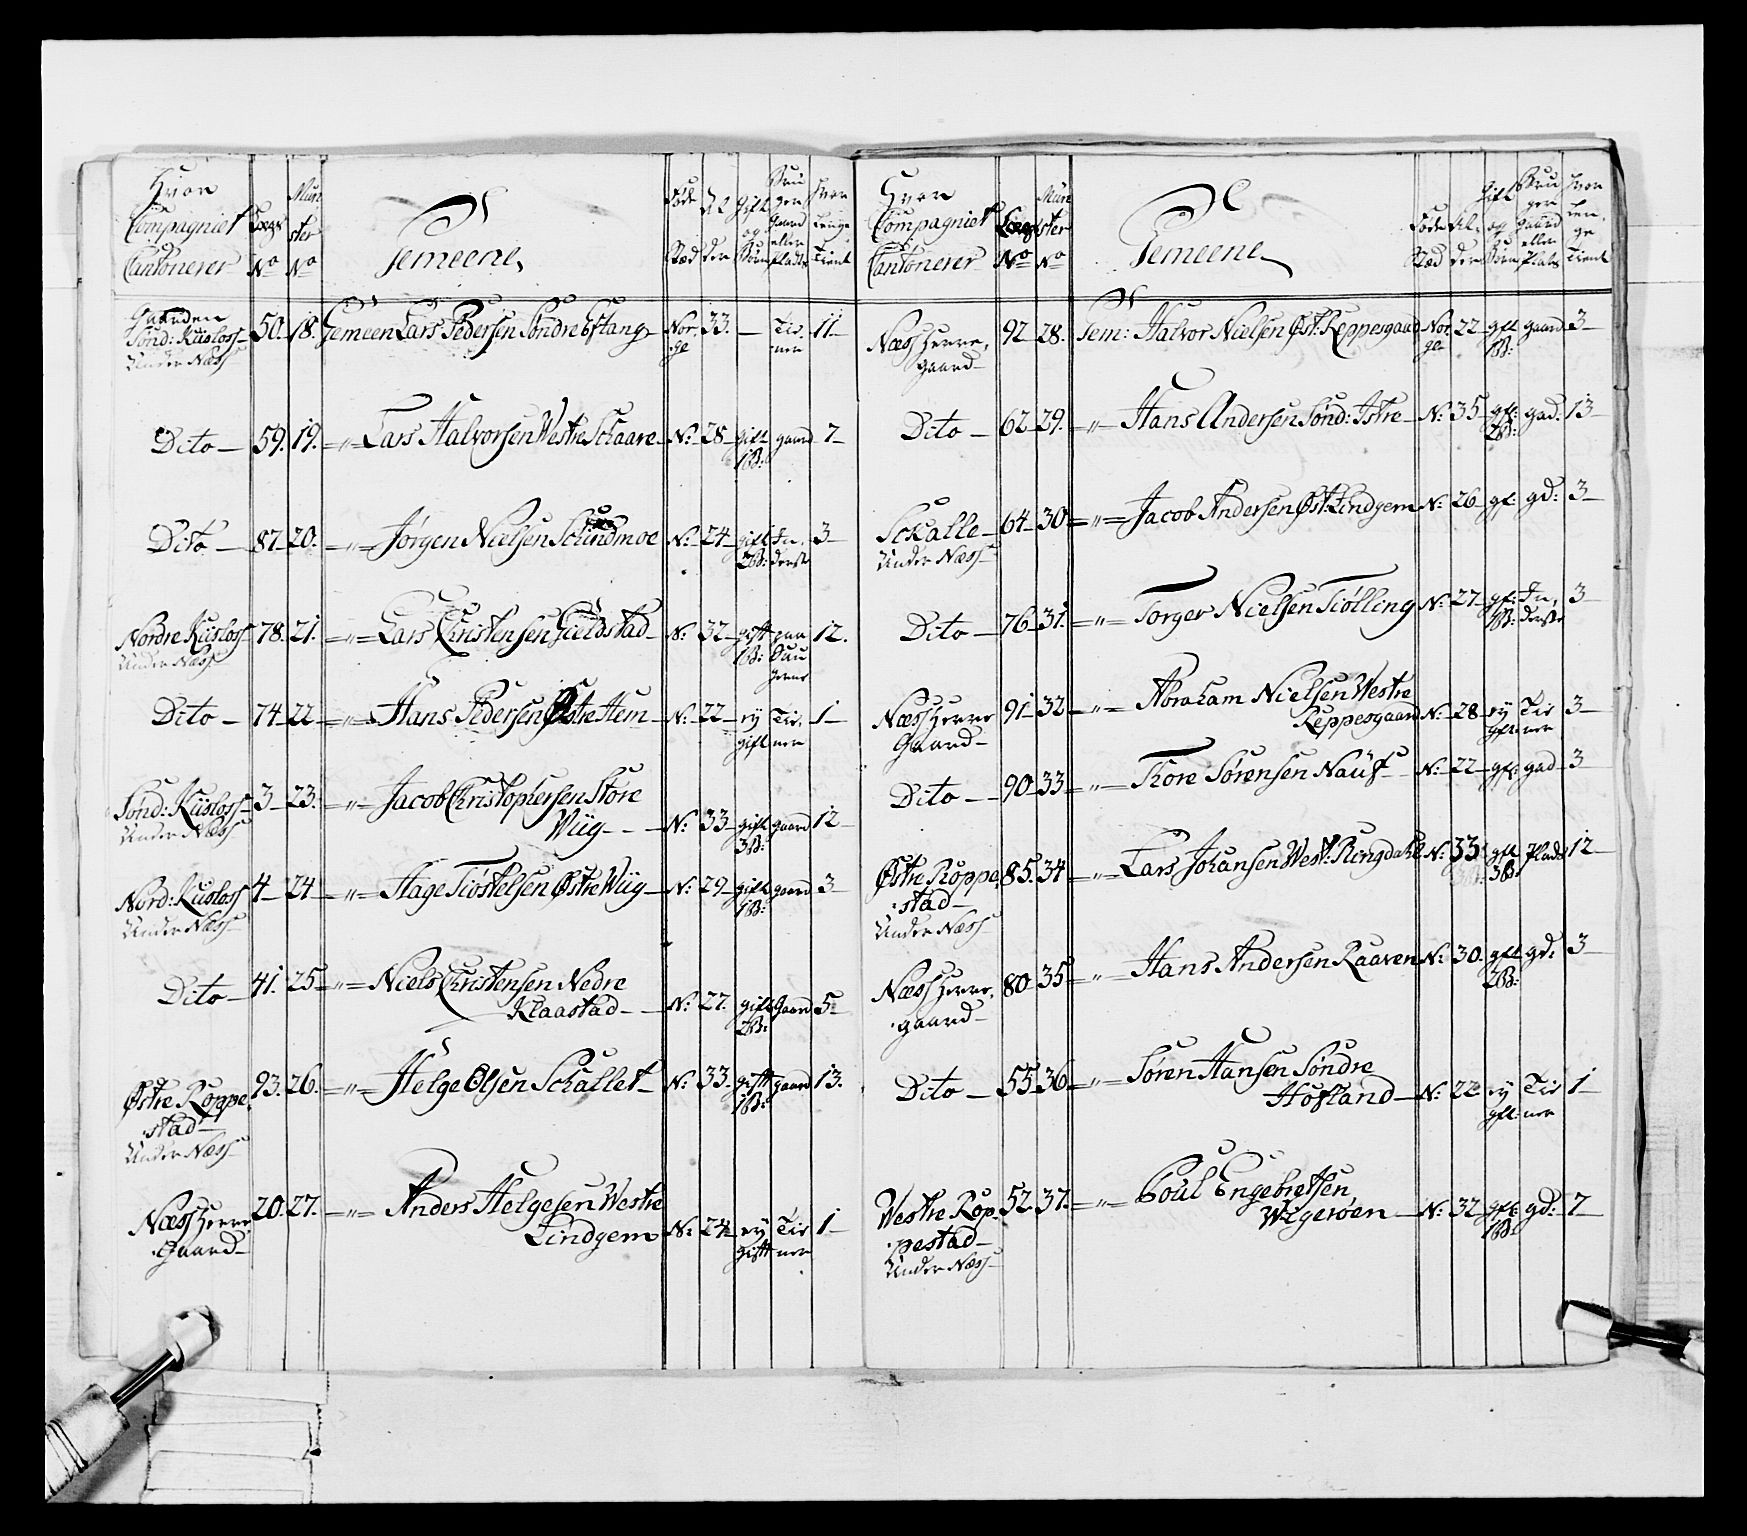 Hvor Compagniet Cantonerer | Lægs No | Mün ster No | Gemeene | Føde Stæd | Al der | Gift og Børn | Bru ger Gaard eller Plads | Hvor Længe Tient
Gaarden Sønd: Kiislofs Under Næss | 50. | 18. | Gemeen Lars Pedersen Søndre Eftang | Nor ge | 33. | — | Tie ner | 11
Dito | 59. | 19. | —"— Lars Halvorsen Westre Schaare | N: | 28 | gift 1B: | gaard | 7
Dito | 87 | 20. | —"— Jørgen Nielsen Schindmoe | N: | 24 | gift 2B: | In derste | 3
Nordre Kiislofs Under Næss | 78. | 21. | —"— Lars Christensen Gieldstad | N: | 32 | gift 1B: | paa | 12.
Dito | 74 | 22 | —"— Hans Pedersen Østre Hem | N: | 22 | ey gift | Tie ner | 1
Sønd: Kiislofs Under Næss | 3 | 23. | —"— Jacob Christophersen Store
Wiig | N: | 33 | gift 3B: | gaard | 12
Nord: Kiislofs Under Næss | 4 | 24 | —"— Hage Tiøstelsen Østre Wiig | N: | 29 | gift 1B: | gaard | 3
Dito | 41. | 25 | —"— Niels Christensen Nedre
Klaastad | N: | 27. | gift 2B: | Gaard | 5
Østre Roppe stad Under Næss | 93. | 26. | —"— Helge Olsen Schallet | N: | 33. | gift 1B: | gaard | 13.
Næss Herre Gaard | 20. | 27. | —"— Anders Helgesen Westre
Lindgem | N: | 24 | ey gift | Tie ner | 1
Hvor Compagniet Cantonerer | Lægs No | Mün ster No | Gemeene | Føde Stæd | Al der | Gift og Børn | Bru ger Gaard eller Plads | Hvor Len ge Tient
Næss Herre gaard | 92 | 28. | Gem: Halvor Nielsen Øst: Reppesgaard | Nor ge | 22 | gft 1B: | gaard | 3
Dito | 62 | 29. | —"— Hans Andersen Sønd: Istre | N: | 35 | gft: 2B: | gad: | 13
Sckalle Under Næss | 64 | 30 | —"— Jacob Andersen Øst: Lindgem | N: | 26 | gf: | gd: | 3
Dito | 76 | 31. | —"— Torger Nielsen Tiølling | N: | 27 | gf: 1B: | In derste | 3
Næss Herre Gaard | 91 | 32 | —"— Abraham Nielsen Westre
Reppesgaard | N: | 28 | ey gft: | Tie ner | 3
Dito | 90 | 33 | —"— Thore Sørensen Nauf | N: | 22 | gf: | gad | 3
Østre Roppe stad Under Næss | 85. | 34 | —"— Lars Johansen West: Ringdahl | N: | 33 | gft 3B: | Plads | 12
Næss Herre gaard | 80 | 35 | —"— Hans Andersen Raaven | N: | 30. | gft 2B: | gd: | 3
Dito | 55 | 36 | —"— Søren Hansen Søndre
Hofland | N: | 22 | ey gft: | Tie ner | 1
Westre Rop pestad Under Næss | 52. | 37. | —"— Poul Engebretsen
Wigerøen | N: | 32 | gft: 1B: | gd: | 7